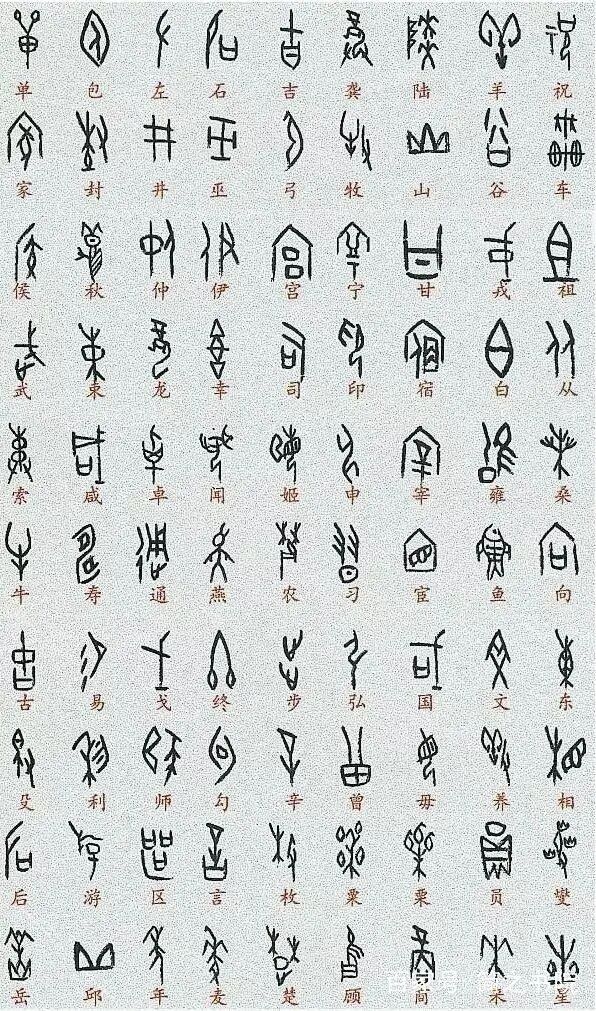 单 包 左 石 吉 龚 陆 羊 祝
家 封 井 巫 弓 牧 山 谷 车
侯 秋 仲 伊 宫 宁 甘 戎 祖
武 束 龙 幸 司 印 宿 白 从
索 咸 卓 闻 姬 申 宰 雍 桑
牛 寿 通 燕 农 习 宦 鱼 向
古 易 戈 终 步 弘 国 文 东
殳 利 师 勾 辛 曾 毋 养 相
后 游 区 言 枚 粟 栗 员 燮
岳 邱 年 麦 楚 顾 商 来 星
百家号